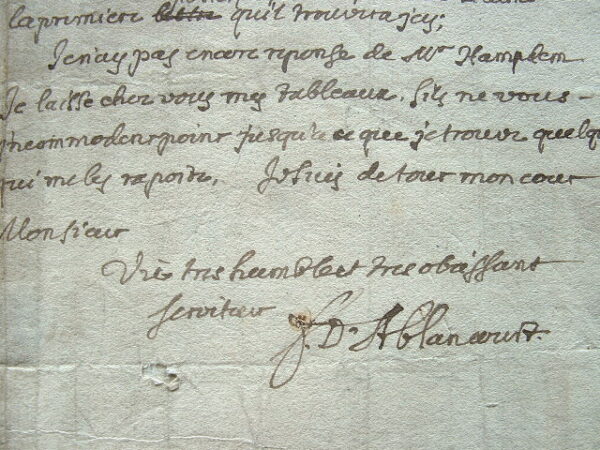 la premiere lettre qu'il trouvera icy;
Je n'ay pas encore reponse de Mr Hampden
Je laisse chez vous mes tableaux, s'ils ne vous
incommodent point jusqu'a ce que je trouve quelqu
qui me les raporte, Je suis de tout mon cœur
Monsieur
Vre tres humble et tres obeissant
serviteur
f. D. Ablancourt.